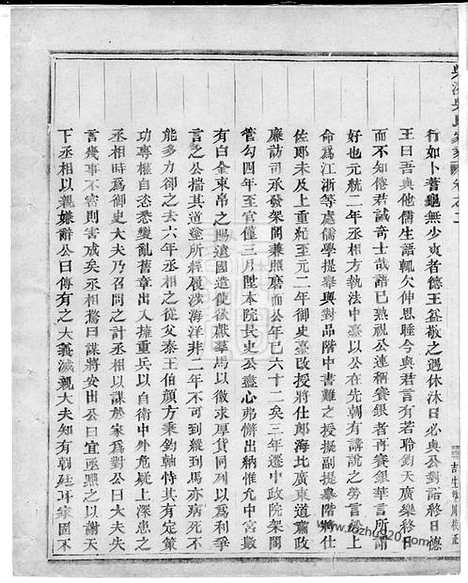 行如卜蓍龜無少爽者德王益敬之遇休沐日必與公對語終日德
王曰吾與他儒生語輒欠伸思睡今與君言有若聆鈞天廣樂終日
而不知倦君誠奇士哉語已熟視公連稱賽銀者再賽銀華言所謂
也元統二年丞相方執法中臺以公在先朝有講說之勞言於上
命為江浙等處儒學提舉與對品階中書難之授擬副提舉階將仕
佐郎未及上重紀至元二年御史臺改授將仕郎海北廣東道肅政
廉訪司承發架閣兼照磨而公年已六十二矣三年遷中政院架閣
管勾四年至官僅三月陞本院長史公盡心弗懈出納惟允中宮數
有白金束帛之賜遠國遣使欲獻羣馬以徼求厚貨同列以為利爭
言之公揣其道塗所經履涉海洋非二年不可到縱到馬亦病死不
能多力卻之去六年丞相之從父秦王伯顏方秉鈞軸恃其有定策
功專權自恣悉變亂舊章出入擁重兵以自衛中外危疑上深患之
丞相時為御史大夫乃召問之計於家為對公曰大夫失
言幾事不密則害成矣丞相驚曰謀將安出公曰宜亟黜之以謝天
下丞相以親嫌辭公曰傳有之大義滅親大夫知有朝廷耳家固不